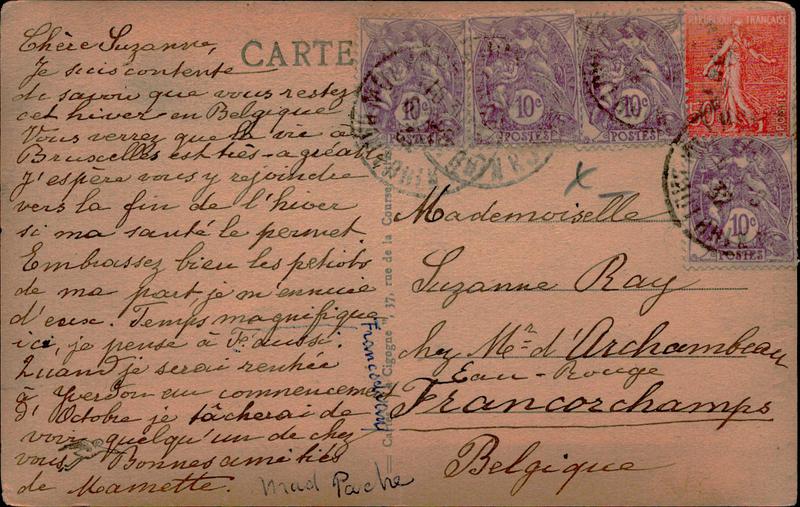 CARTE
Chère Suzanne,
Je suis contente
de savoir que vous restez
cet hiver en Belgique
Vous verrez que la vie à
Bruxelles est très-agréab
J'espère vous y rejoindre
vers la fin de l'hiver
si ma santé le permet.
Embrassez bien les petiots
de ma part je m'ennuie
d'eux. Temps magnifique
ici, je pense à F
Quand je serai rentrée
à Yverdon au commencement
d'Octobre je tâcherai de
voir quelqu'un de chez
vous. Bonnes amitiés
de Mamette.
Mad Pache
Cigogne", 37, rue de la Course
RÉPUBLIQUE FRANÇAISE
POSTES
10c
POSTES
10c
POSTES
10c
POSTES
10c
POSTES
Mademoiselle
Suzanne Ray
chez Mr d'Archambeau
Eau-Rouge
Francorchamps
Belgique